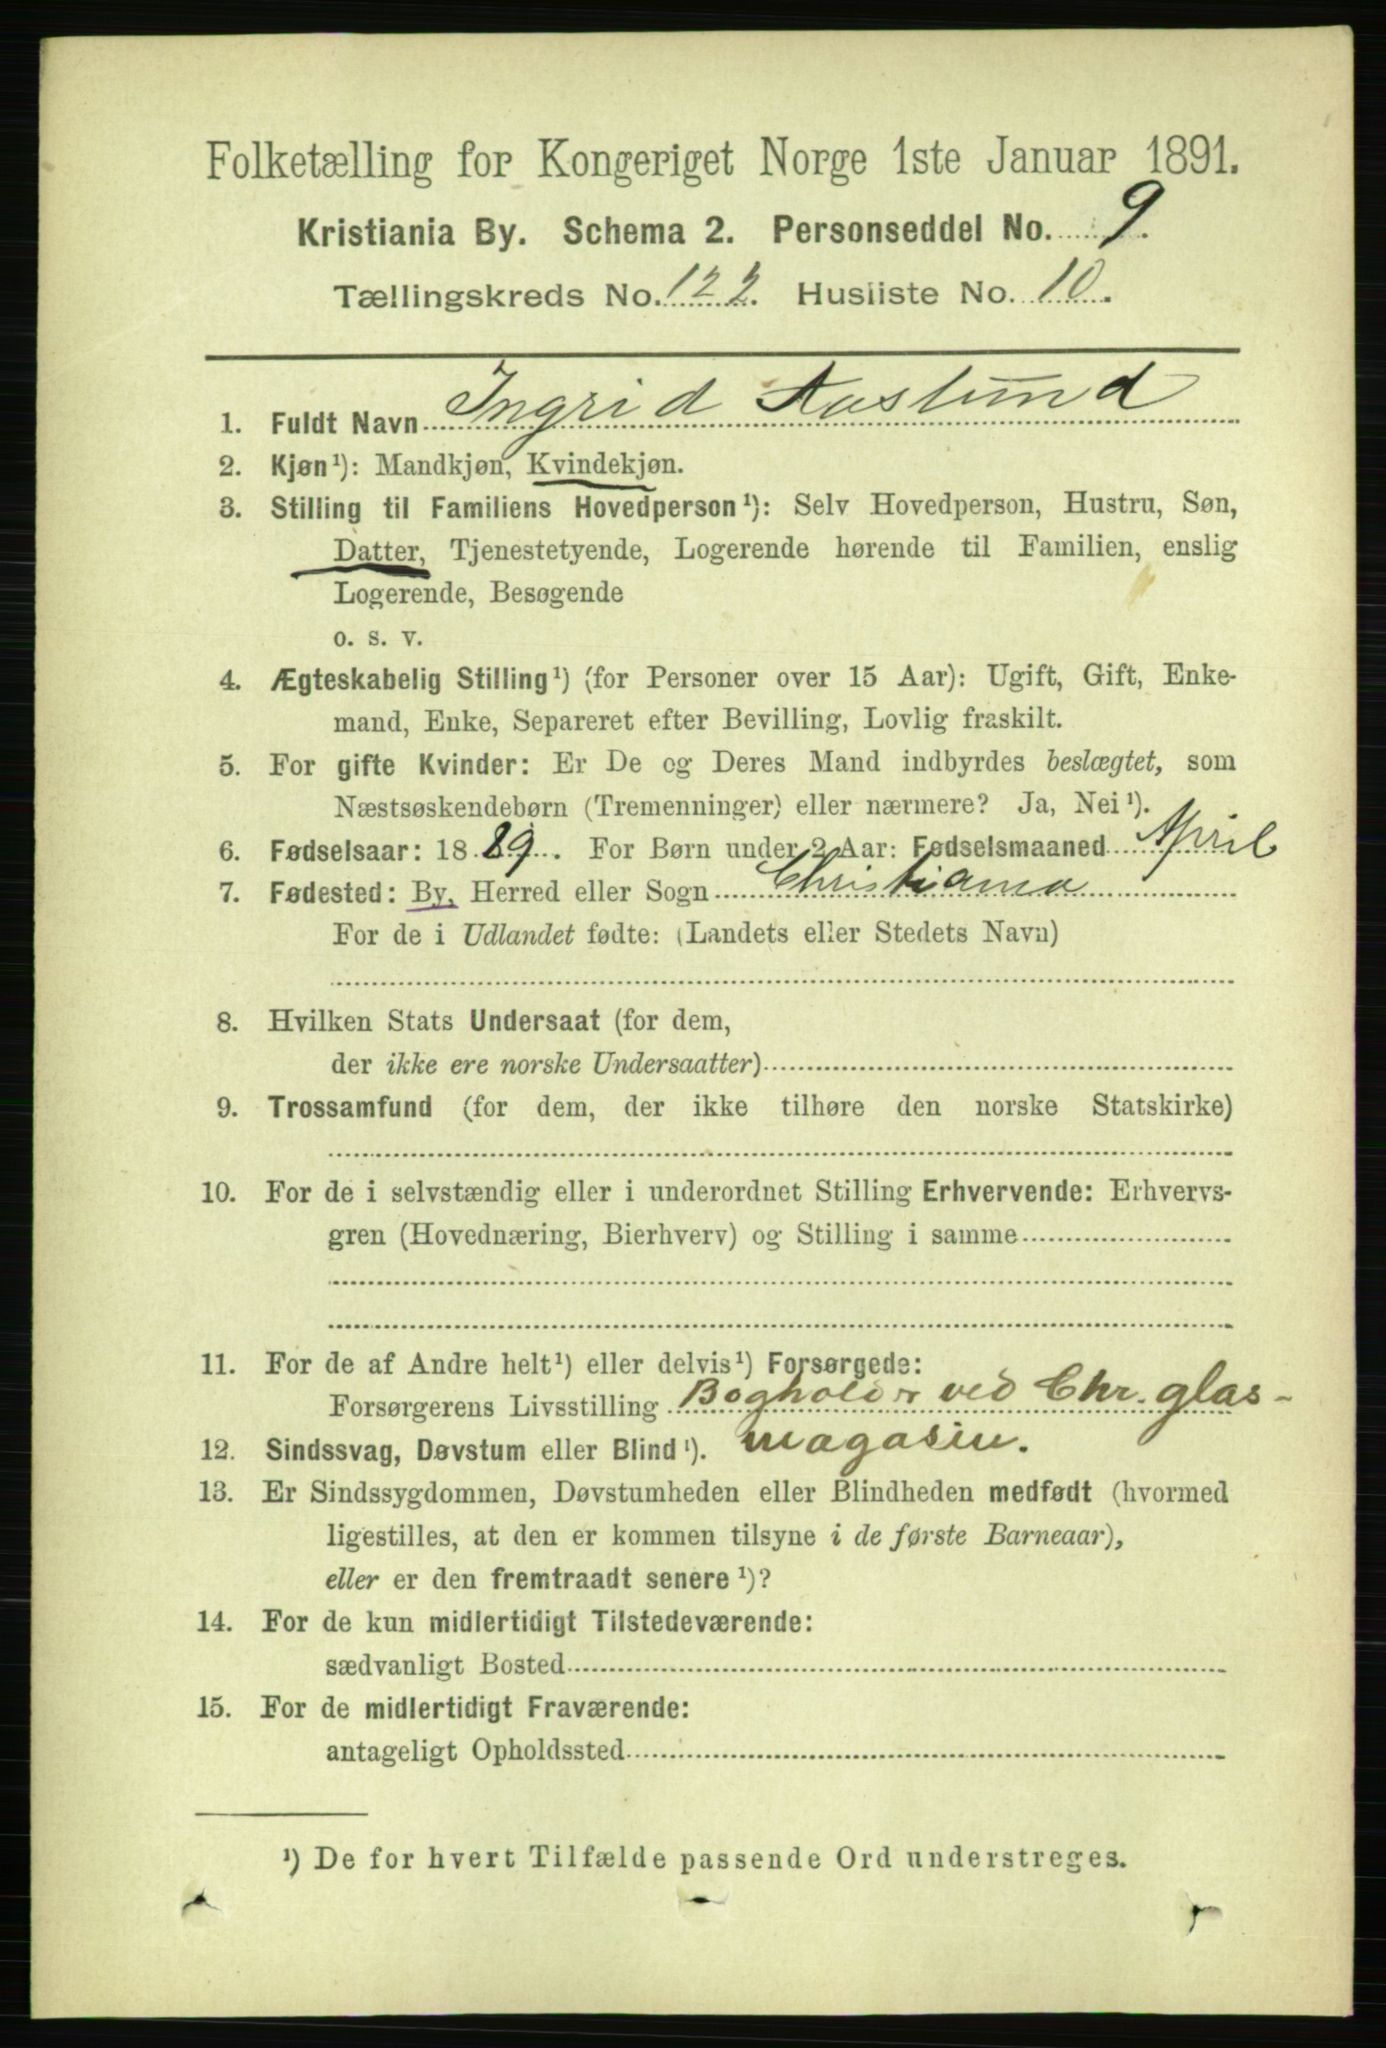 Folketælling for Kongeriget Norge 1ste Januar 1891.
Kristiania By. Schema 2. Personseddel No. 9.
Tællingskreds No. 122. Husliste No. 10.
1. Fuldt Navn Ingrid Aaslund
2. Kjøn¹): Mandkjøn, Kvindekjøn.
3. Stilling til Familiens Hovedperson¹): Selv Hovedperson, Hustru, Søn,
Datter, Tjenestetyende, Logerende hørende til Familien, enslig
Logerende, Besøgende
o. s. v.
4. Ægteskabelig Stilling¹) (for Personer over 15 Aar): Ugift, Gift, Enke-
mand, Enke, Separeret efter Bevilling, Lovlig fraskilt.
5. For gifte Kvinder: Er De og Deres Mand indbyrdes beslægtet, som
Næstsøskendebørn (Tremenninger) eller nærmere? Ja, Nei¹).
6. Fødselsaar: 1889. For Børn under 2 Aar: Fødselsmaaned April
7. Fødested: By, Herred eller Sogn Christiania
For de i Udlandet fødte: (Landets eller Stedets Navn)
8. Hvilken Stats Undersaat (for dem,
der ikke ere norske Undersaatter)
9. Trossamfund (for dem, der ikke tilhøre den norske Statskirke)
10. For de i selvstændig eller i underordnet Stilling Erhvervende: Erhvervs-
gren (Hovednæring, Bierhverv) og Stilling i samme
11. For de af Andre helt¹) eller delvis¹) Forsørgede:
Forsørgerens Livsstilling Bogholder ved Chr. glas-
12. Sindssvag, Døvstum eller Blind¹). magasin.
13. Er Sindssygdommen, Døvstumheden eller Blindheden medfødt (hvormed
ligestilles, at den er kommen tilsyne i de første Barneaar),
eller er den fremtraadt senere¹)?
14. For de kun midlertidigt Tilstedeværende:
sædvanligt Bosted
15. For de midlertidigt Fraværende:
antageligt Opholdssted
¹) De for hvert Tilfælde passende Ord understreges.